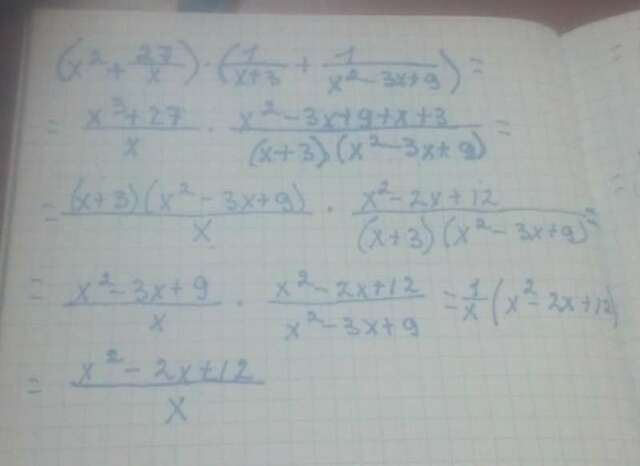 (x² + 27/x) · (1/(x+3) + 1/(x² - 3x+9)) =
= (x³+27)/x · (x² - 3x+9+x+3)/((x+3)(x² - 3x+9)) =
= ((x+3)(x² - 3x+9))/x · (x² - 2x+12)/((x+3)(x² - 3x+9)) =
= (x² - 3x+9)/x · (x² - 2x+12)/(x² - 3x+9) = 1/x (x² - 2x+12)
= (x² - 2x+12)/x